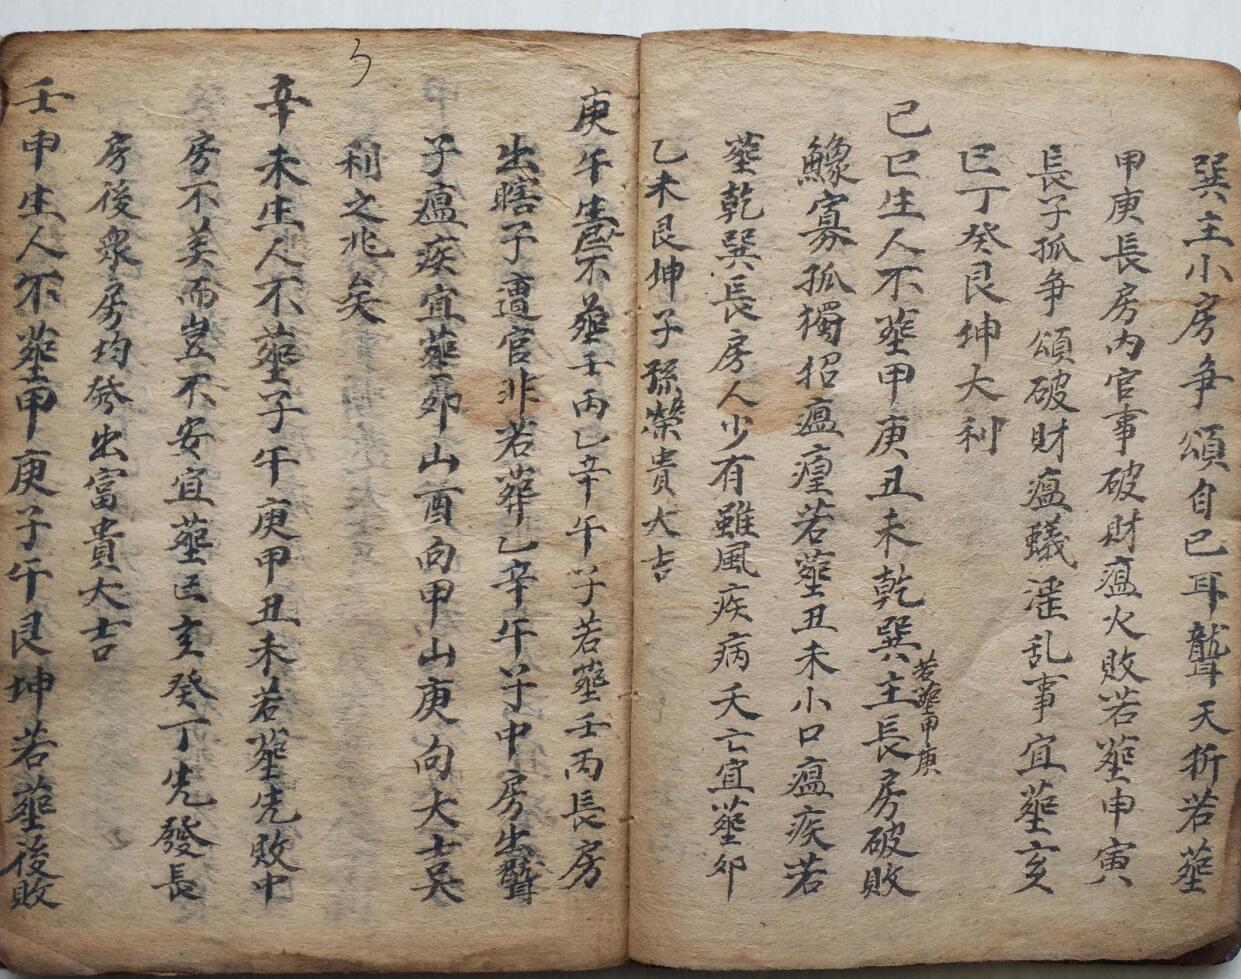 巽主小房争頌自己耳聾天折若塟
甲庚長房内官事破財瘟火敗若塟申寅
長子孤争頌破財瘟蟻淫乱事宜塟亥
巳丁癸艮坤大利
己巳生人不塟甲庚丑未乾巽主長房破敗
若塟甲庚
鰥寡孤獨招瘟瘟若塟丑未小口瘟疾若
塟乾巽長房人少有雖風疾病夭亡宜塟卯
乙未艮坤子孫榮貴大吉
庚午生居不塟壬丙乙辛午子若塟壬丙長房
出瞎子遭官非若葬乙辛午子中房出聾
子瘟疾宜塟卯山酉向甲山庚向大吉吴
利之兆矣
辛未生人不塟子午庚甲丑未若塟先敗中
房不美而豈不安宜塟巳亥癸丁先發長
房後衆房均發出富貴大吉
壬申生人不塟甲庚子午艮坤若塟後敗